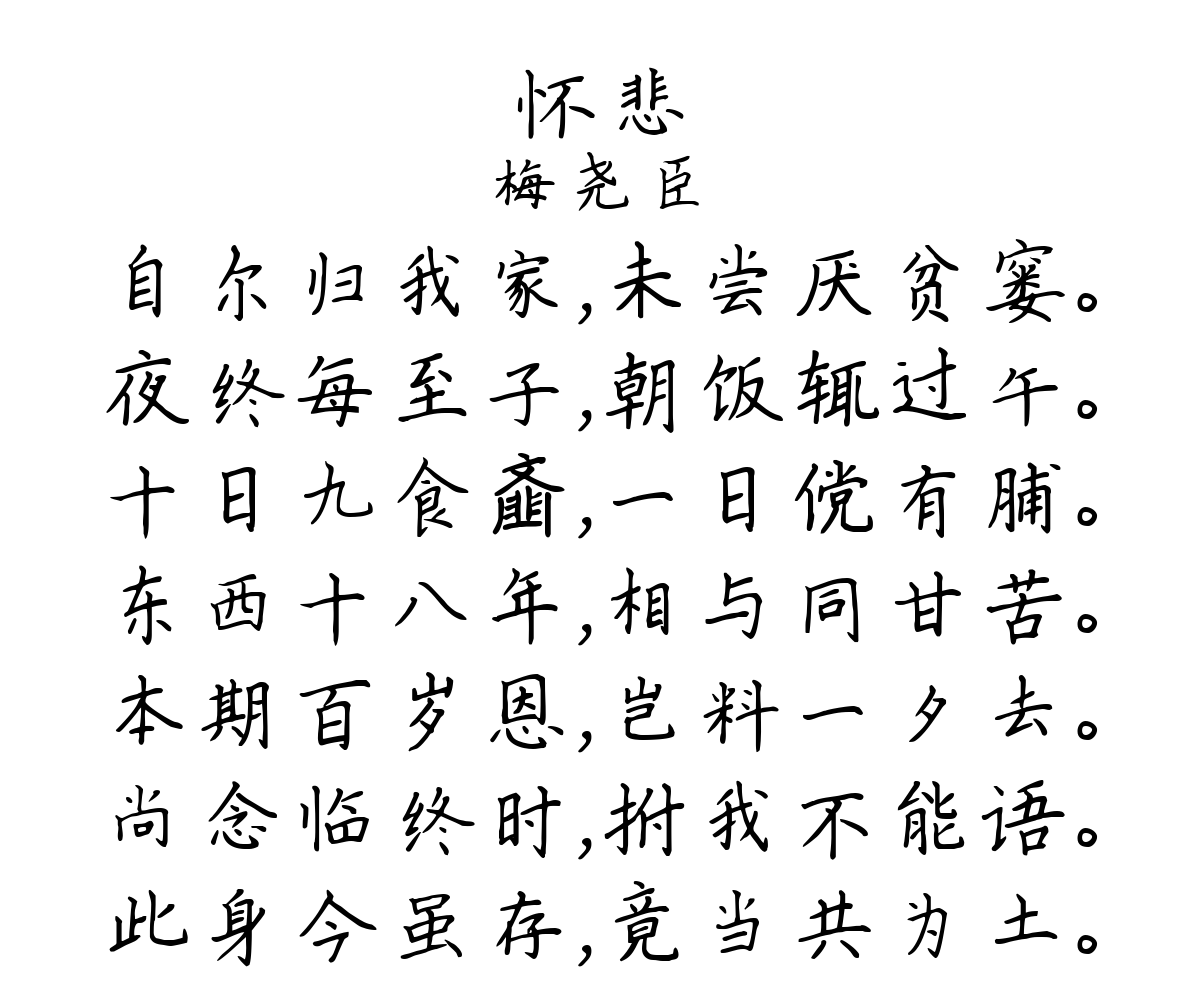 怀悲
梅尧臣
自尔归我家,未尝厌贫窭。
夜终每至子,朝饭辄过午。
十日九食齑,一日傥有脯。
东西十八年,相与同甘苦。
本期百岁恩,岂料一夕去。
尚念临终时,拊我不能语。
此身今虽存,竟当共为土。